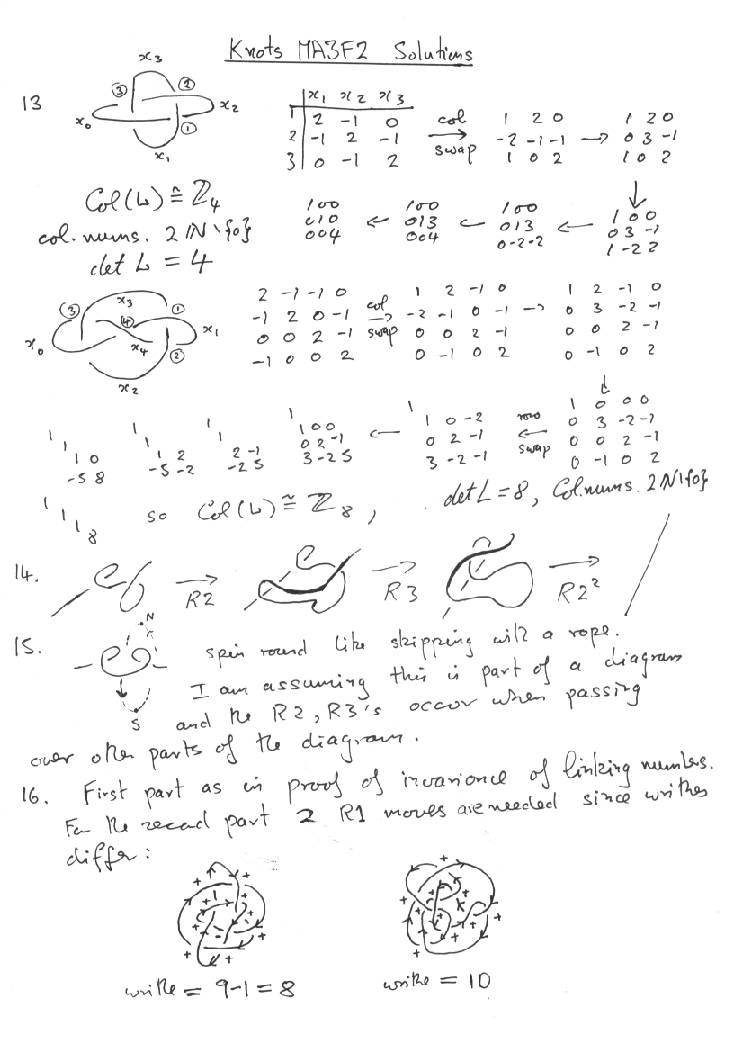 Knots MA3F2 Solutions
13
x3
③ ②
x0 x2
①
x1
x1 x2 x3
1 2 -1 0
2 -1 2 -1
3 0 -1 2
col
→
swap
1 2 0
-2 -1 -1
1 0 2
→
1 2 0
0 3 -1
1 0 2
↓
1 0 0
0 3 -1
1 -2 2
←
1 0 0
0 1 3
0 -2 -2
←
1 0 0
0 1 3
0 0 4
←
1 0 0
0 1 0
0 0 4
Col(L) ≅ ℤ4
col. nums. 2ℕ\{0}
det L = 4
③ x3 ①
④
x0 x4 x1
②
x2
2 -1 -1 0
-1 2 0 -1
0 0 2 -1
-1 0 0 2
col
→
swap
1 2 -1 0
-2 -1 0 -1
0 0 2 -1
0 -1 0 2
→
1 2 -1 0
0 3 -2 -1
0 0 2 -1
0 -1 0 2
↓
1 0 0 0
0 3 -2 -1
0 0 2 -1
0 -1 0 2
row
←
swap
1
1 0 -2
0 2 -1
3 -2 -1
←
1
1 0 0
0 2 -1
3 -2 5
1
1
2 -1
-2 5
1
1
1 2
-5 -2
1
1
1 0
-5 8
1
1
1
8
so Col(L) ≅ ℤ8, det L = 8, Col. nums. 2ℕ\{0}
14. → R2 → R3 → R2²
15. N
S
spin round like skipping with a rope.
I am assuming this is part of a diagram
and the R2, R3's occur when passing
over other parts of the diagram.
16. First part as in proof of invariance of linking numbers.
For the second part 2 R1 moves are needed since writhes
differ:
writhe = 9-1 = 8
writhe = 10